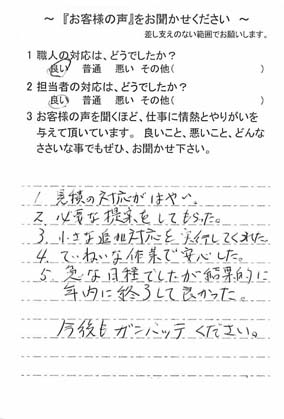 ～『お客様の声』をお聞かせください ～
差し支えのない範囲でお願いします。
1 職人の対応は、どうでしたか？
良い 普通 悪い その他( )
2 担当者の対応は、どうでしたか？
良い 普通 悪い その他( )
3 お客様の声を聞くほど、仕事に情熱とやりがいを
与えて頂いています。 良いこと、悪いこと、どんな
ささいな事でもぜひ、お聞かせ下さい。
1. 見積の対応がはやい。
2. 必要な提案をしてもらった。
3. 小さな追加対応を実行してくれた
4. ていねいな作業で安心した。
5. 急な日程でしたが結果的に
年内に終了して良かった。
今後もガンバッテください。